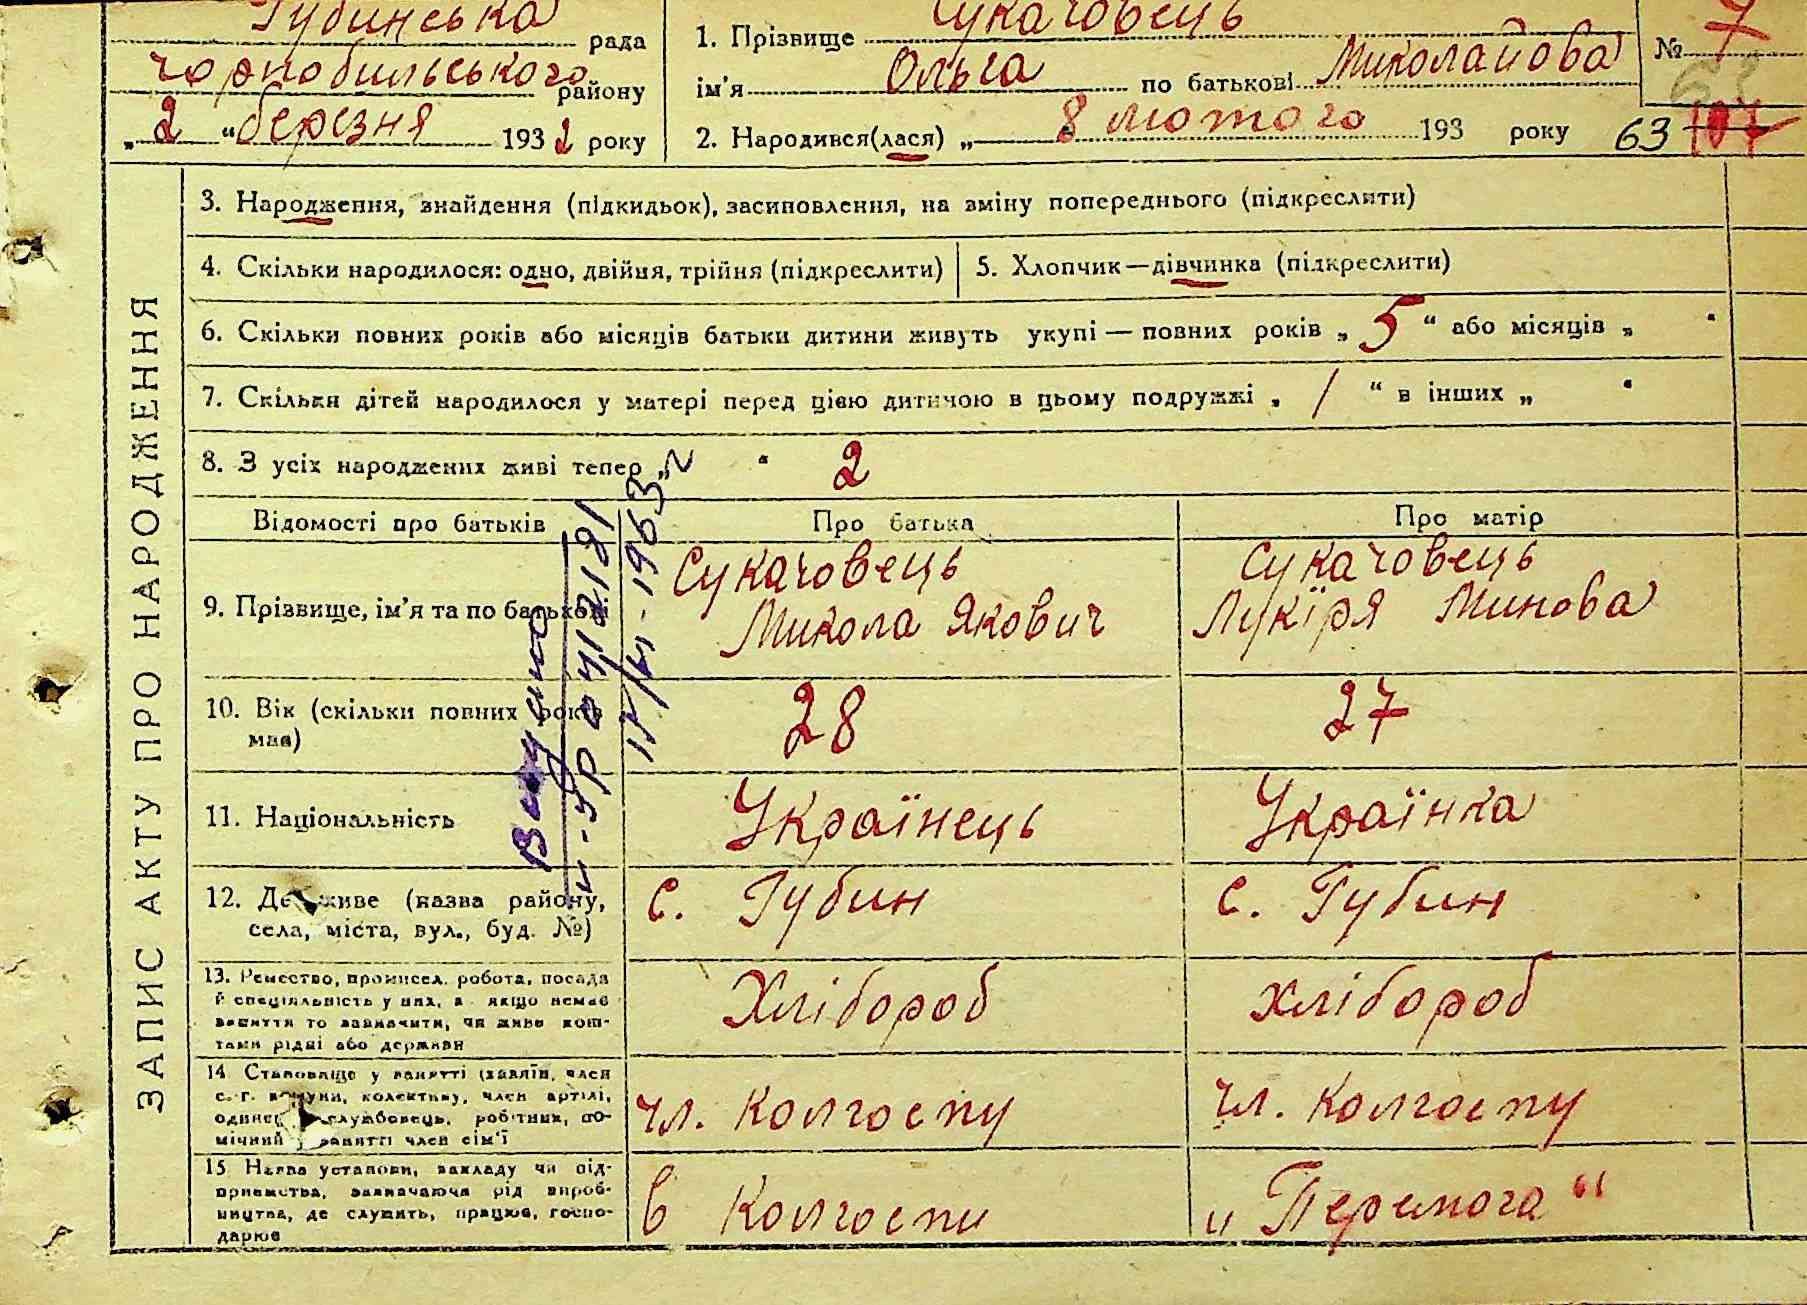 Губинська рада
Чорнобильського району
„ 2 “ березня 1932 року
1. Прізвище Сукачовець
ім'я Ольга по батькові Миколайова
2. Народився(лася) „ 8 лютого 193 року
№ 7
63 107
ЗАПИС АКТУ ПРО НАРОДЖЕННЯ
3. Народження, знайдення (підкидьок), засиповлення, на зміну попереднього (підкреслити)
4. Скільки народилося: одно, двійня, трійня (підкреслити)
5. Хлопчик—дівчинка (підкреслити)
6. Скільки повних років або місяців батьки дитини живуть укупі — повних років „ 5 “ або місяців „ “
7. Скільки дітей народилося у матері перед цією дитиною в цьому подружжі „ 1 “ в інших „ “
8. З усіх народжених живі тепер „ “ 2
Відомості про батьків Про батька Про матір
9. Прізвище, ім'я та по батькові
Сукачовець
Микола Якович
Сукачовець
Лукїря Минова
10. Вік (скільки повних років
має)
28 27
11. Національність Українець Українка
12. Де живе (назва району,
села, міста, вул., буд. №)
с. Губин с. Губин
13. Ремество, промисел, робота, посада
й спеціяльність у них, а якщо немає
заняття то зазначити, чи живе кош-
тами рідні або держави
Хлібороб хлібороб
14 Становище у занятті (хазяїн, член
с.-г. комуни, колективу, член артілі,
одинец службовець, робітник, по-
мічний у занятті член сім'ї
чл. колгоспу чл. колгоспу
15 Назва установи, закладу чи під-
приємства, зазначаючи рід вироб-
ництва, де служить, працює, госпо-
дарює
в колгоспи „Перемога“
1953